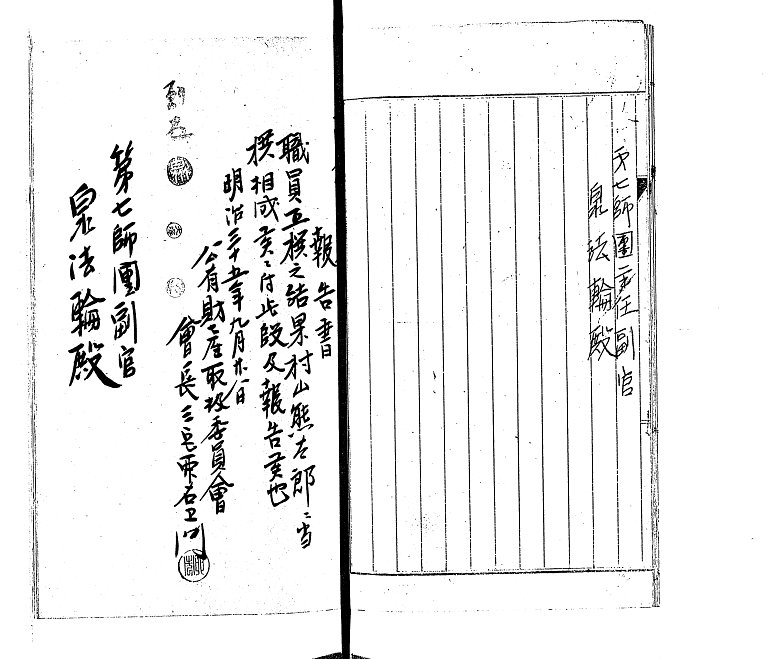 第七師團主任副官
泉法輪殿
報告書
職員互撰之結果村山熊太郎ニ当
撰相成候ニ付此段及報告候也
明治三十五年九月廿八日
公有財産取扱委員會
會長三宅雨右エ門
第七師團副官
泉法輪殿